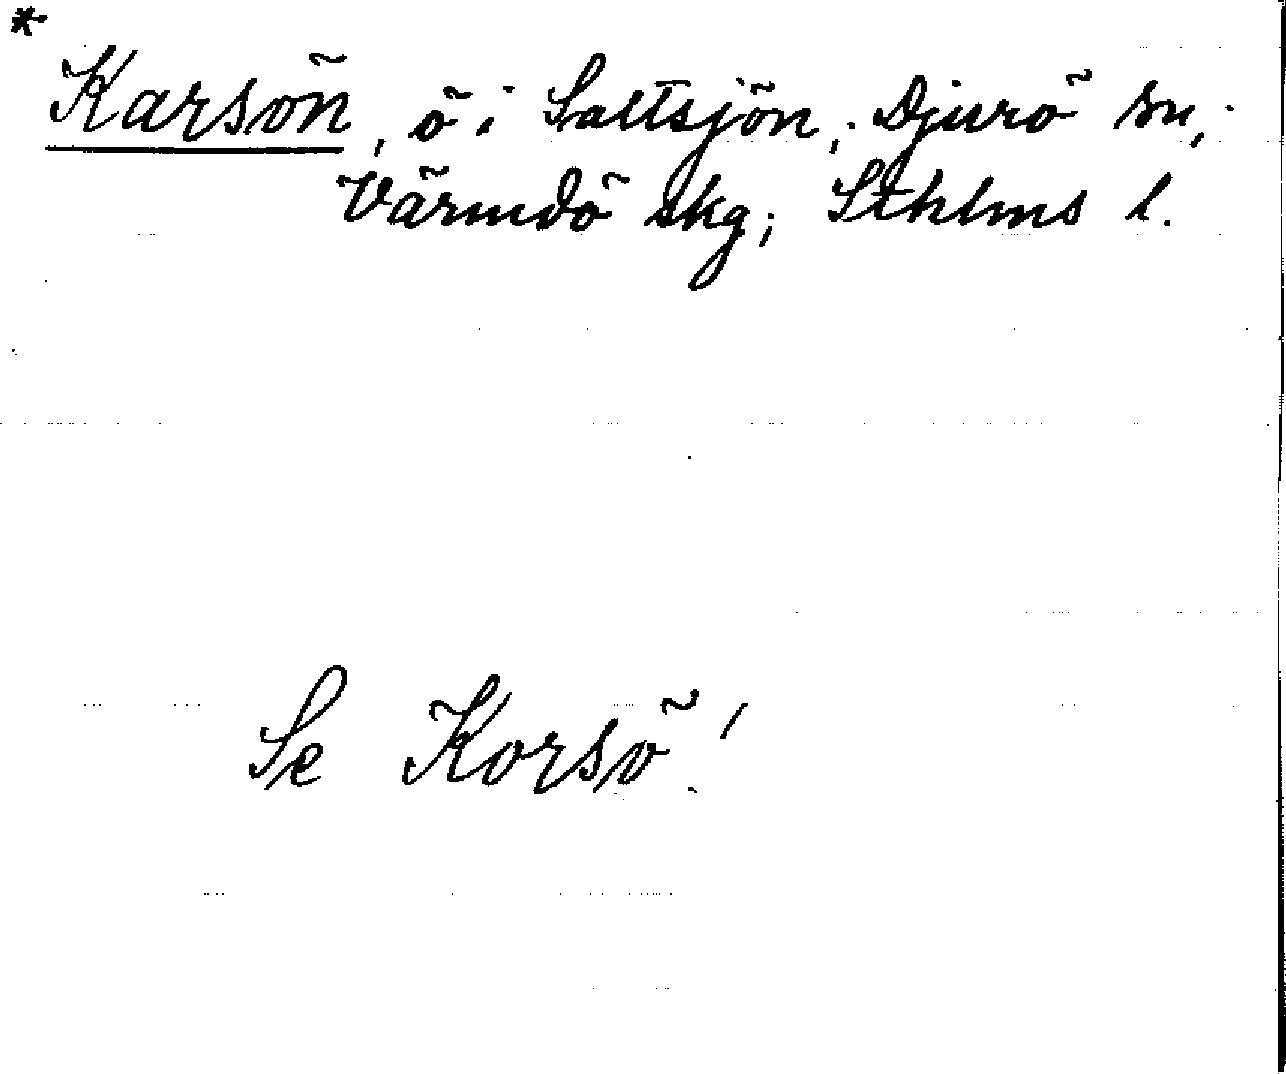 *
Karsön, ö i Saltsjön; Djurö sn;
Värmdö skg; Sthlms l.
Se Korsö!